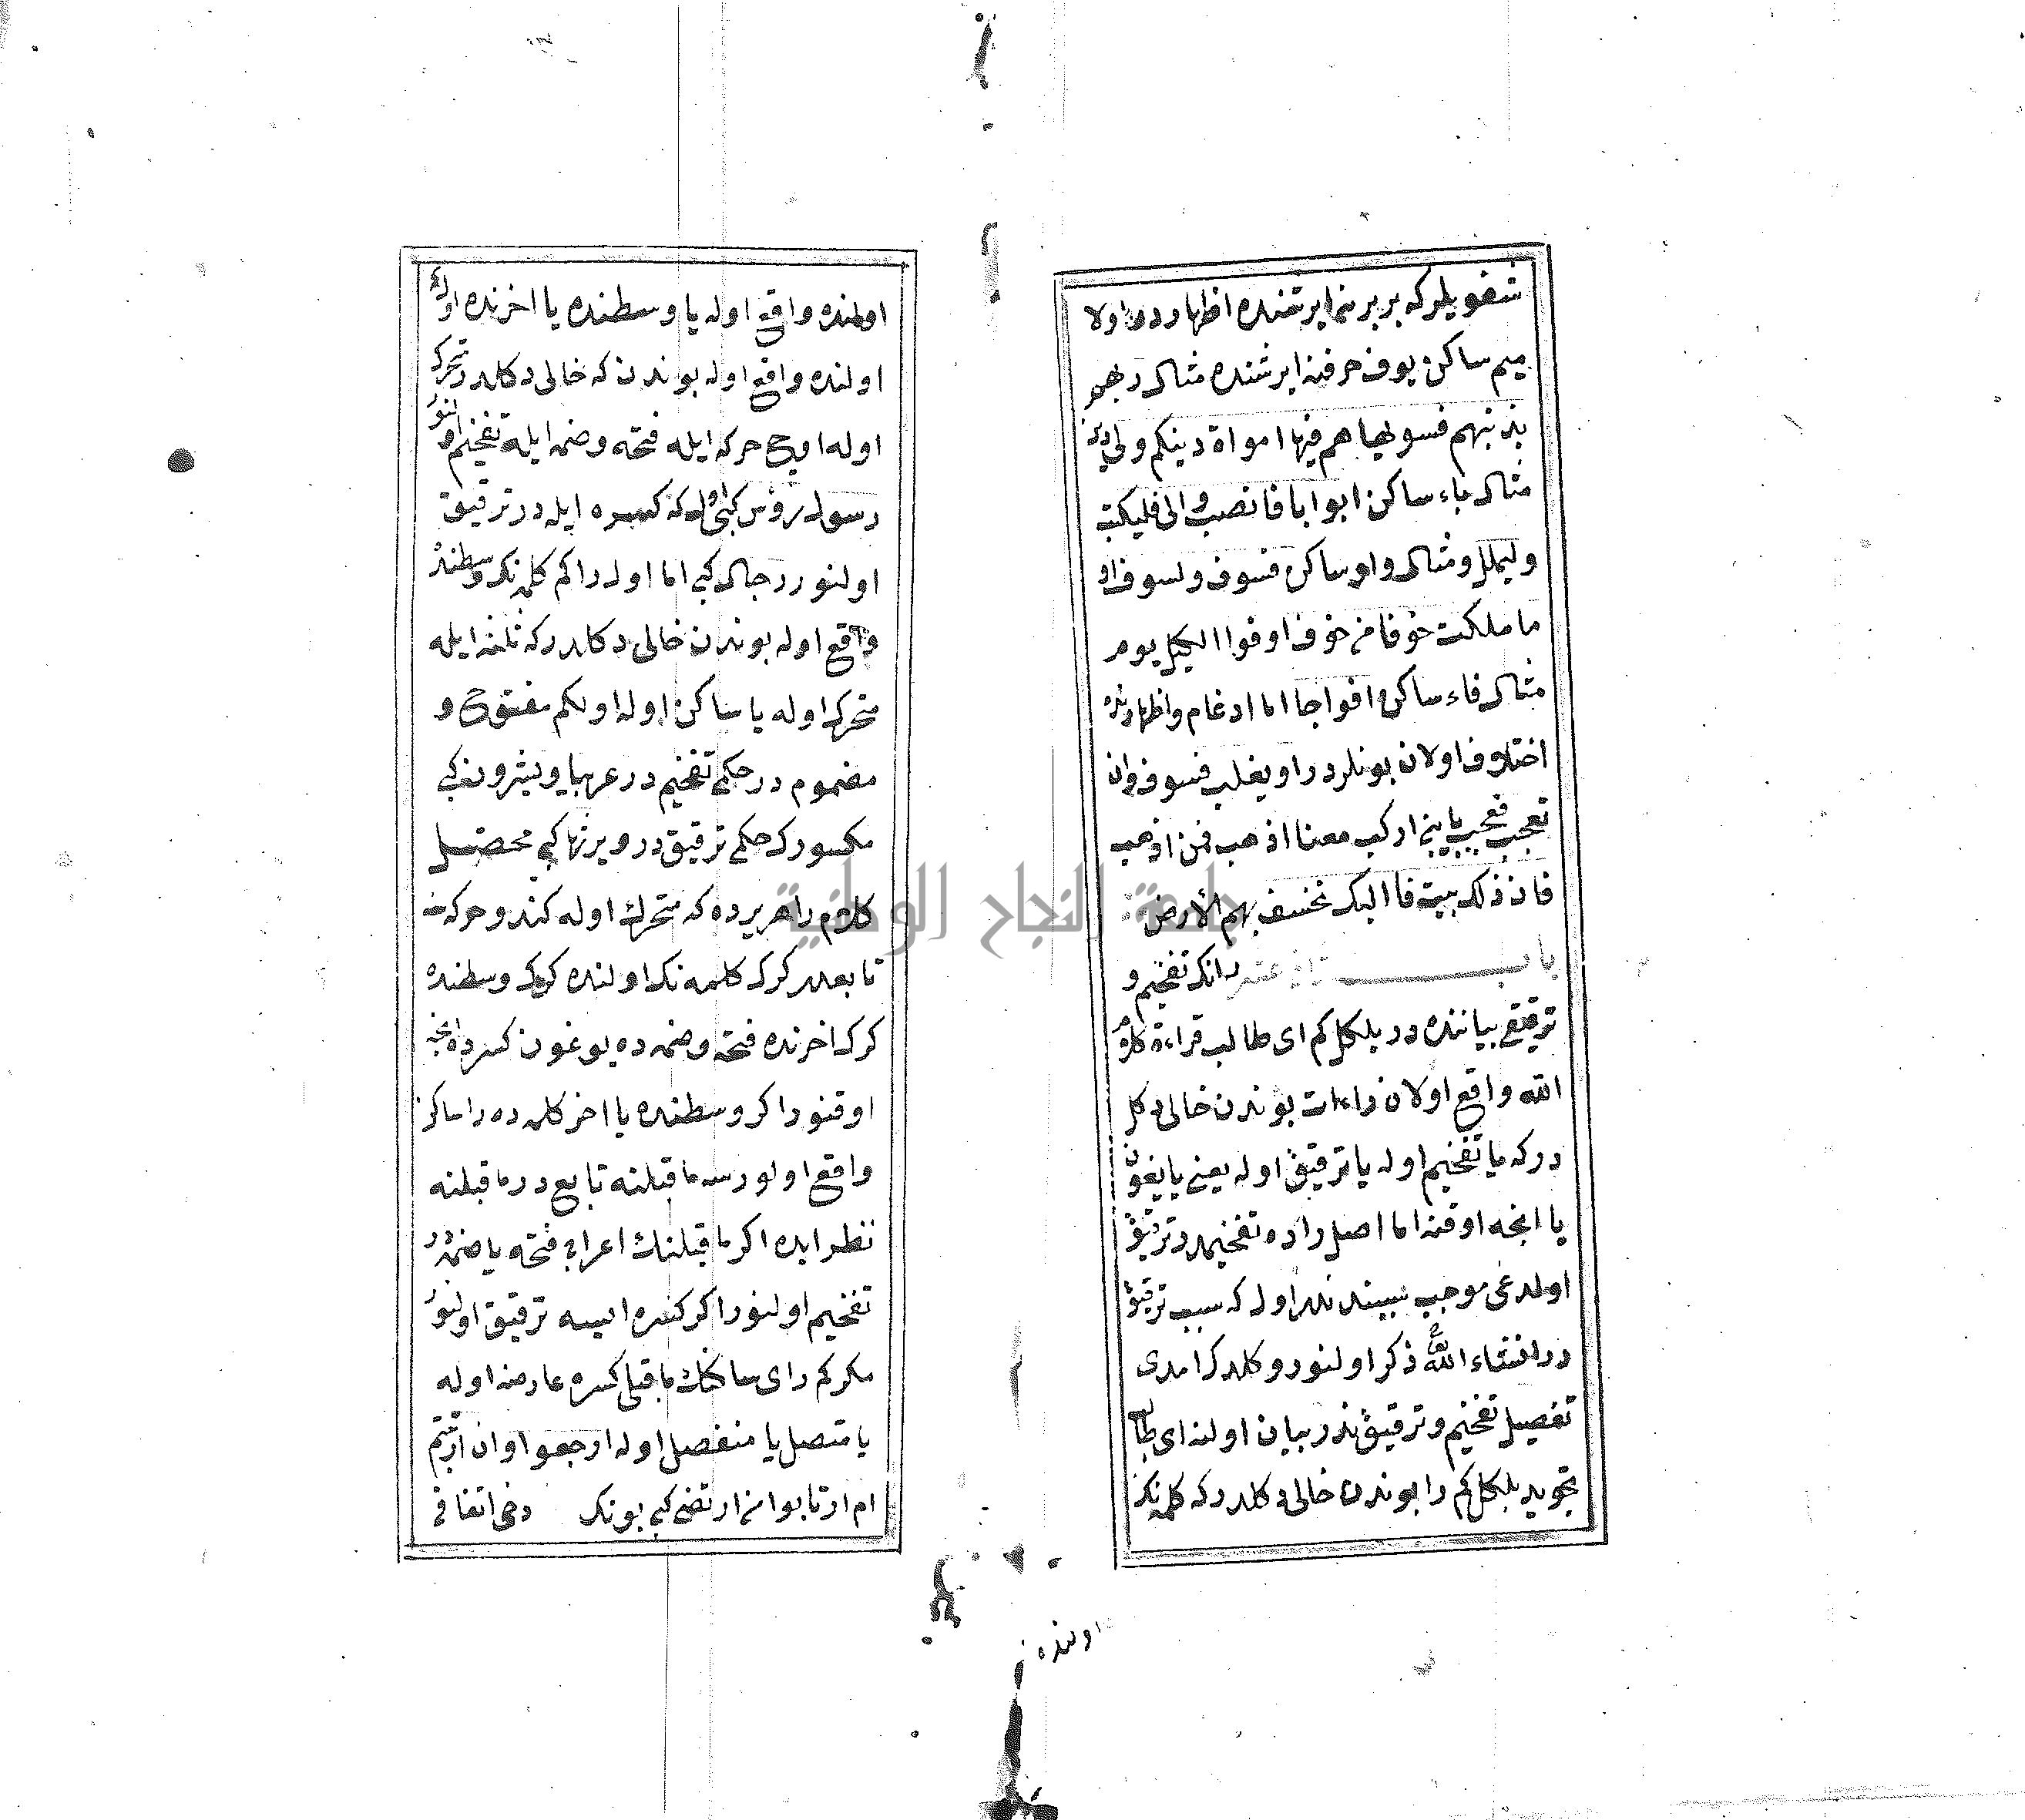 شفويلركه بر برينه ايرشنده اظهاردر اولا
ميم ساكن بوف حرفنه ايرشنده مثال ربهم
بذنبهم فسويها هم فيها امواة دينكم ولي دين
مثال باء ساكن ابوابا فانصب والى فليكتب
وليملل ومثال واو ساكن فسوف ولسوف او
ما ملكت خوفا من خوف اوفوا الكيل يوم
مثال فاء ساكن افواجا اما ادغام واظهارنده
اختلاف اولان بونلردر او يغلب فسوف وان
تعجب فعجب يا بني اركب معنا اذهب فمن اذهب
فان ذلك يتب فاالئك نخسف بهم الأرض
باب رانك تفخيم و
ترقيق بياننده در بلكل كم اى طالب قراءة كلام
الله واقع اولان راءات بوندن خالى دكل
دركه يا تفخيم اوله يا ترقيق اوله يعنى يا يغون
يا انجه اوقنه اما اصل راده تفخيمدر ترقيق
اولدغى موجب سببيندندر اول كه سبب ترقيق
در انشاء الله ذكر اولنور وكلدك امدى
تفصيل تفخيم وترقيق ندر بيان اولنه اى طالب
تجويد بلكل كم را بوندن خالى دكلدركه كلمه نك
اولنده
اولنده واقع اوله يا وسطنده يا اخرنده اول كه
اولنده واقع اوله بوندن كه خالى دكلدر متحرك
اوله اوچ حركه ايله فتحه وضمه ايله تفخيم اولنور
رسول رؤس كبى اول كه كسره ايله در ترقيق
اولنور رجال كبى اما اول را كم كلمه نك وسطنده
واقع اوله بوندن خالى دكلدركه ثلثه ايله
متحرك اوله يا ساكن اوله اولكم مفتوح و
مضموم در حكمى تفخيم در عربا ويشرون كبى
مكسورك حكمى ترقيق در ويرثها كبى محصل
كلام را هر يرده كه متحرك اوله كندو حركه سنه
تابعدر كرك كلمه نك اولنده كرك وسطنده
كرك اخرنده فتحه وضمه ده يوغون كسره ده انجه
اوقنور اكر وسطنده يا اخر كلمه ده را ساكن
واقع اولورسه ما قبلنه تابع در ما قبلنه
نظر ايده اكر ما قبلنك اعرابى فتحه يا ضمه در
تفخيم اولنور اكر كسره ايسه ترقيق اولنور
مكركم راى ساكنك ما قبلى كسره عارضه اوله
يا متصل يا منفصل اوله ارجعوا وان ارتبتم
ام ارتابوا من ارتضى كبى بونك دخى اتفاقى